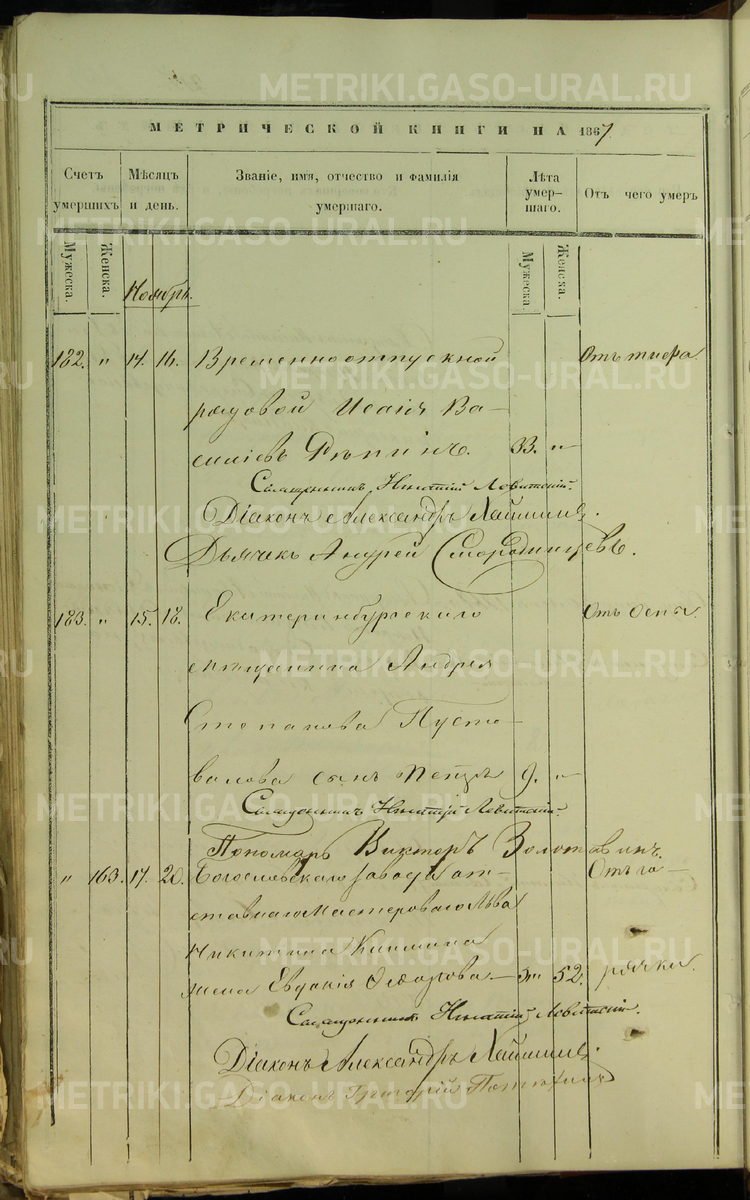 METRIKI.GASO-URAL.RU
МЕТРИЧЕСКОЙ КНИГИ НА 1867
Счетъ умершихъ
Мѣсяцъ и день.
Званіе, имя, отчество и фамилія умершаго.
Лѣта умершаго.
Отъ чего умеръ
Мужеска.
Женска.
Мужеска.
Женска.
Ноябрь.
182. „ 14. 16. Временноотпускной Отъ тифа
рядовой Исаія Ва-
силіевъ Рѣпинъ. 33. „
Священникъ Игнатій Левитскій.
Діаконъ Александръ
Дьячекъ Андрей Смородинцевъ.
183. „ 15. 18. Екатеринбургскаго Отъ оспы.
мѣщанина Андрея
Степанова Пусто-
валова сынъ Петръ 9. „
Священникъ Игнатій Левитскій.
Пономарь Викторъ Золотавинъ.
„ 163. 17. 20. Богословскаго завода от- Отъ го-
ставнаго мастероваго Льва
Никитина
жена Евдокія Ѳедорова. 52. рячки.
Священникъ Игнатій Левитскій.
Діаконъ Александръ
Діаконъ Григорій